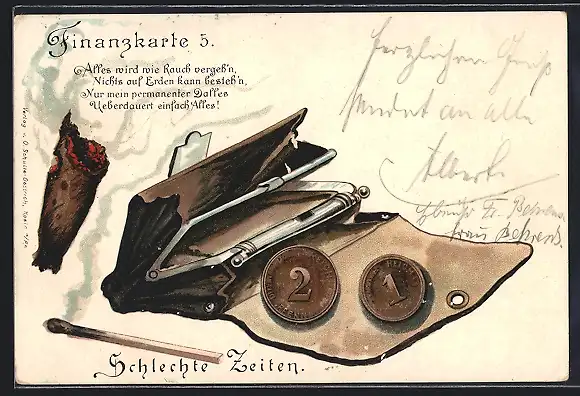 Finanzkarte 5.
Alles wird wie Rauch vergeh'n,
Nichts auf Erden kann besteh'n,
Nur mein permanenter Dalles
Ueberdauert einfach Alles!
Herzlichen Gruß
sendet an alle
Albert
Frau Behrens
Verlag v. O. Schulze
2
1
Schlechte Zeiten.